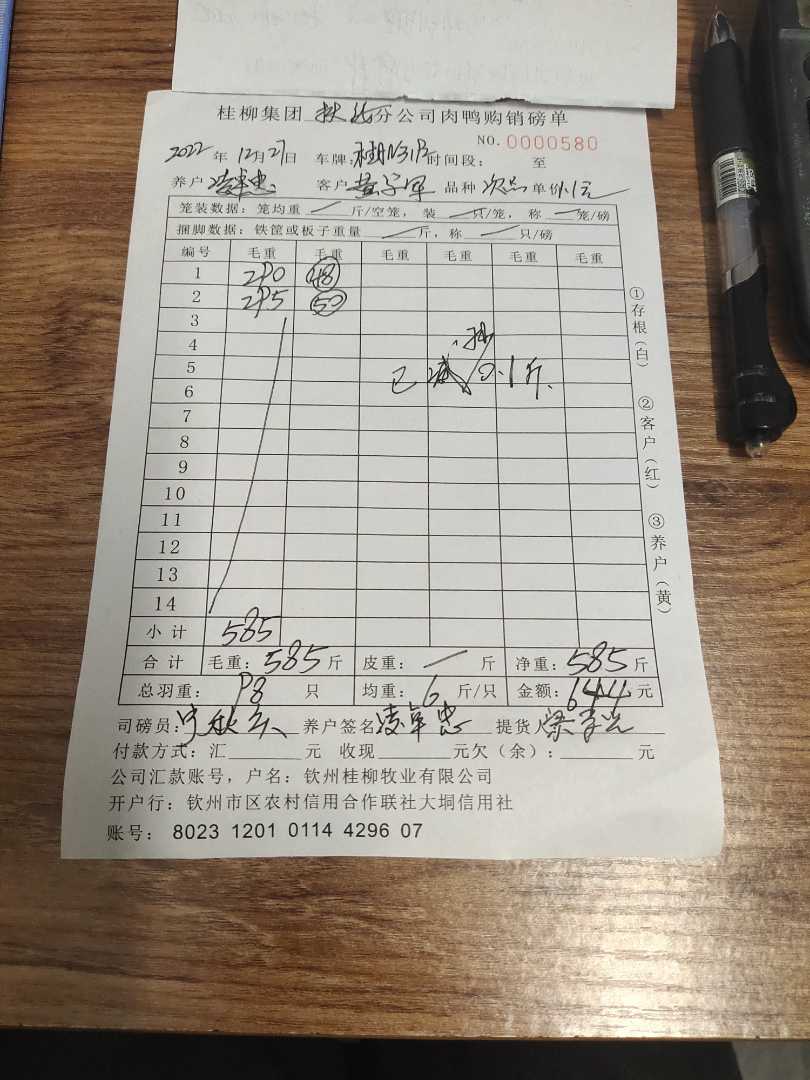 桂柳集团 扶绥分公司肉鸭购销磅单
NO. 0000580
2022年12月27日 车牌: 时间段: 至
养户 客户 黄子军 品种 次品 单价1.1元
笼装数据: 笼均重 / 斤/空笼, 装 / 只/笼, 称 / 笼/磅
捆脚数据: 铁筐或板子重量 / 斤, 称 / 只/磅
编号 毛重 毛重 毛重 毛重 毛重 毛重
1 290 48
2 295 50
3
4
5 已减 0.1斤.
6
7
8
9
10
11
12
13
14
小计 585
合计 毛重: 585斤 皮重: / 斤 净重: 585斤
总羽重: 98 只 均重: 6 斤/只 金额: 644元
司磅员: 养户签名 提货人
付款方式: 汇 元 收现 元欠(余): 元
公司汇款账号, 户名: 钦州桂柳牧业有限公司
开户行: 钦州市区农村信用合作联社大垌信用社
账号: 8023 1201 0114 4296 07
①存根(白)
②客户(红)
③养户(黄)